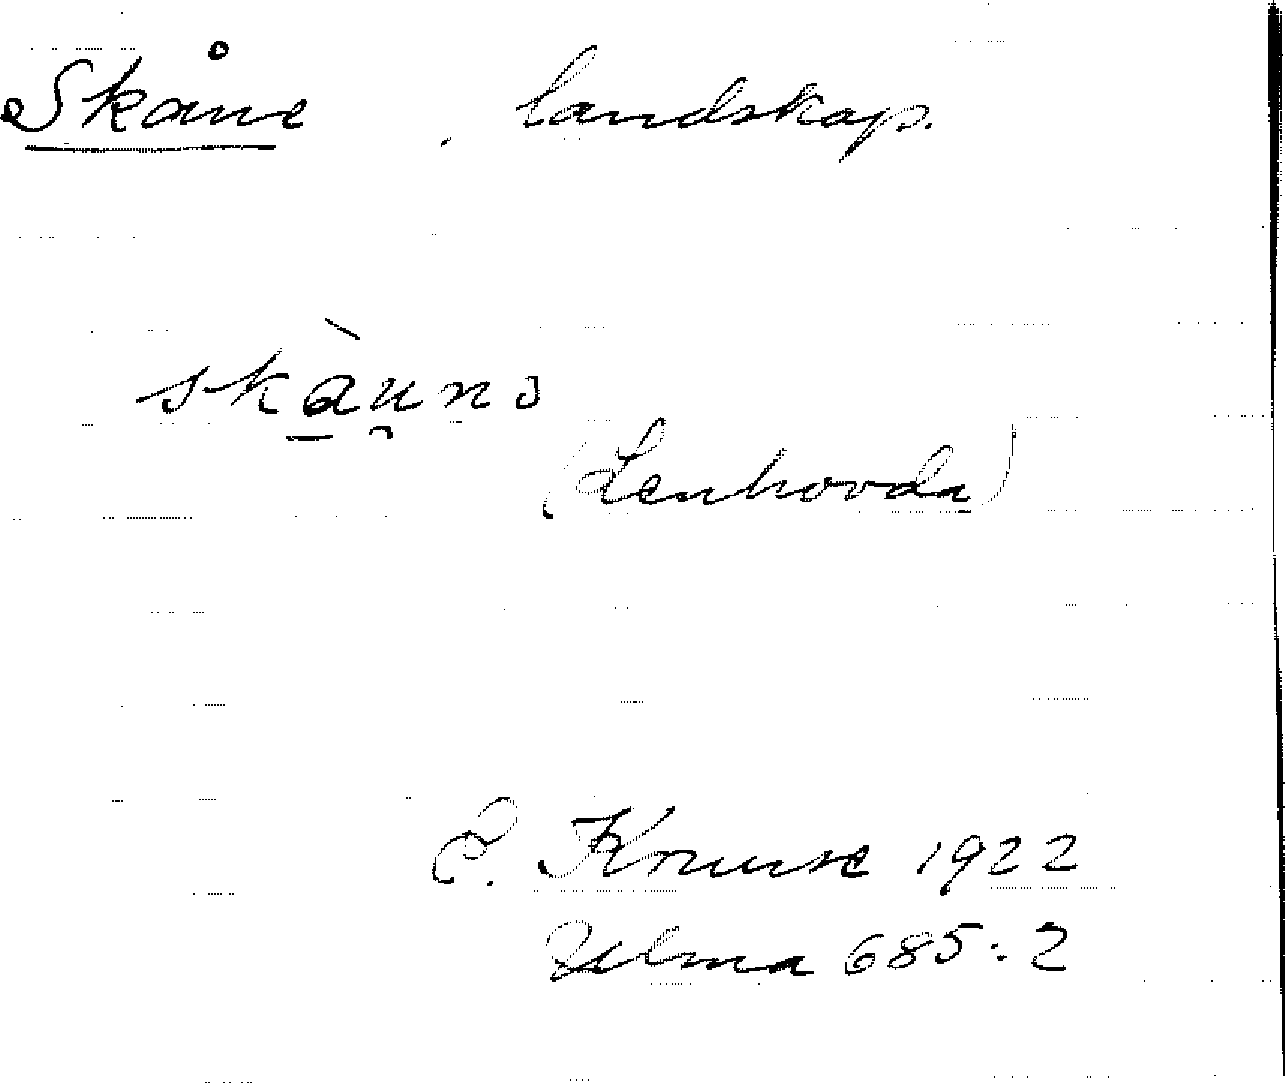 Skåne, landskap.
skàu̯nɔ
(Lenhovda)
E. Kruuse 1922
Ulma 685:2